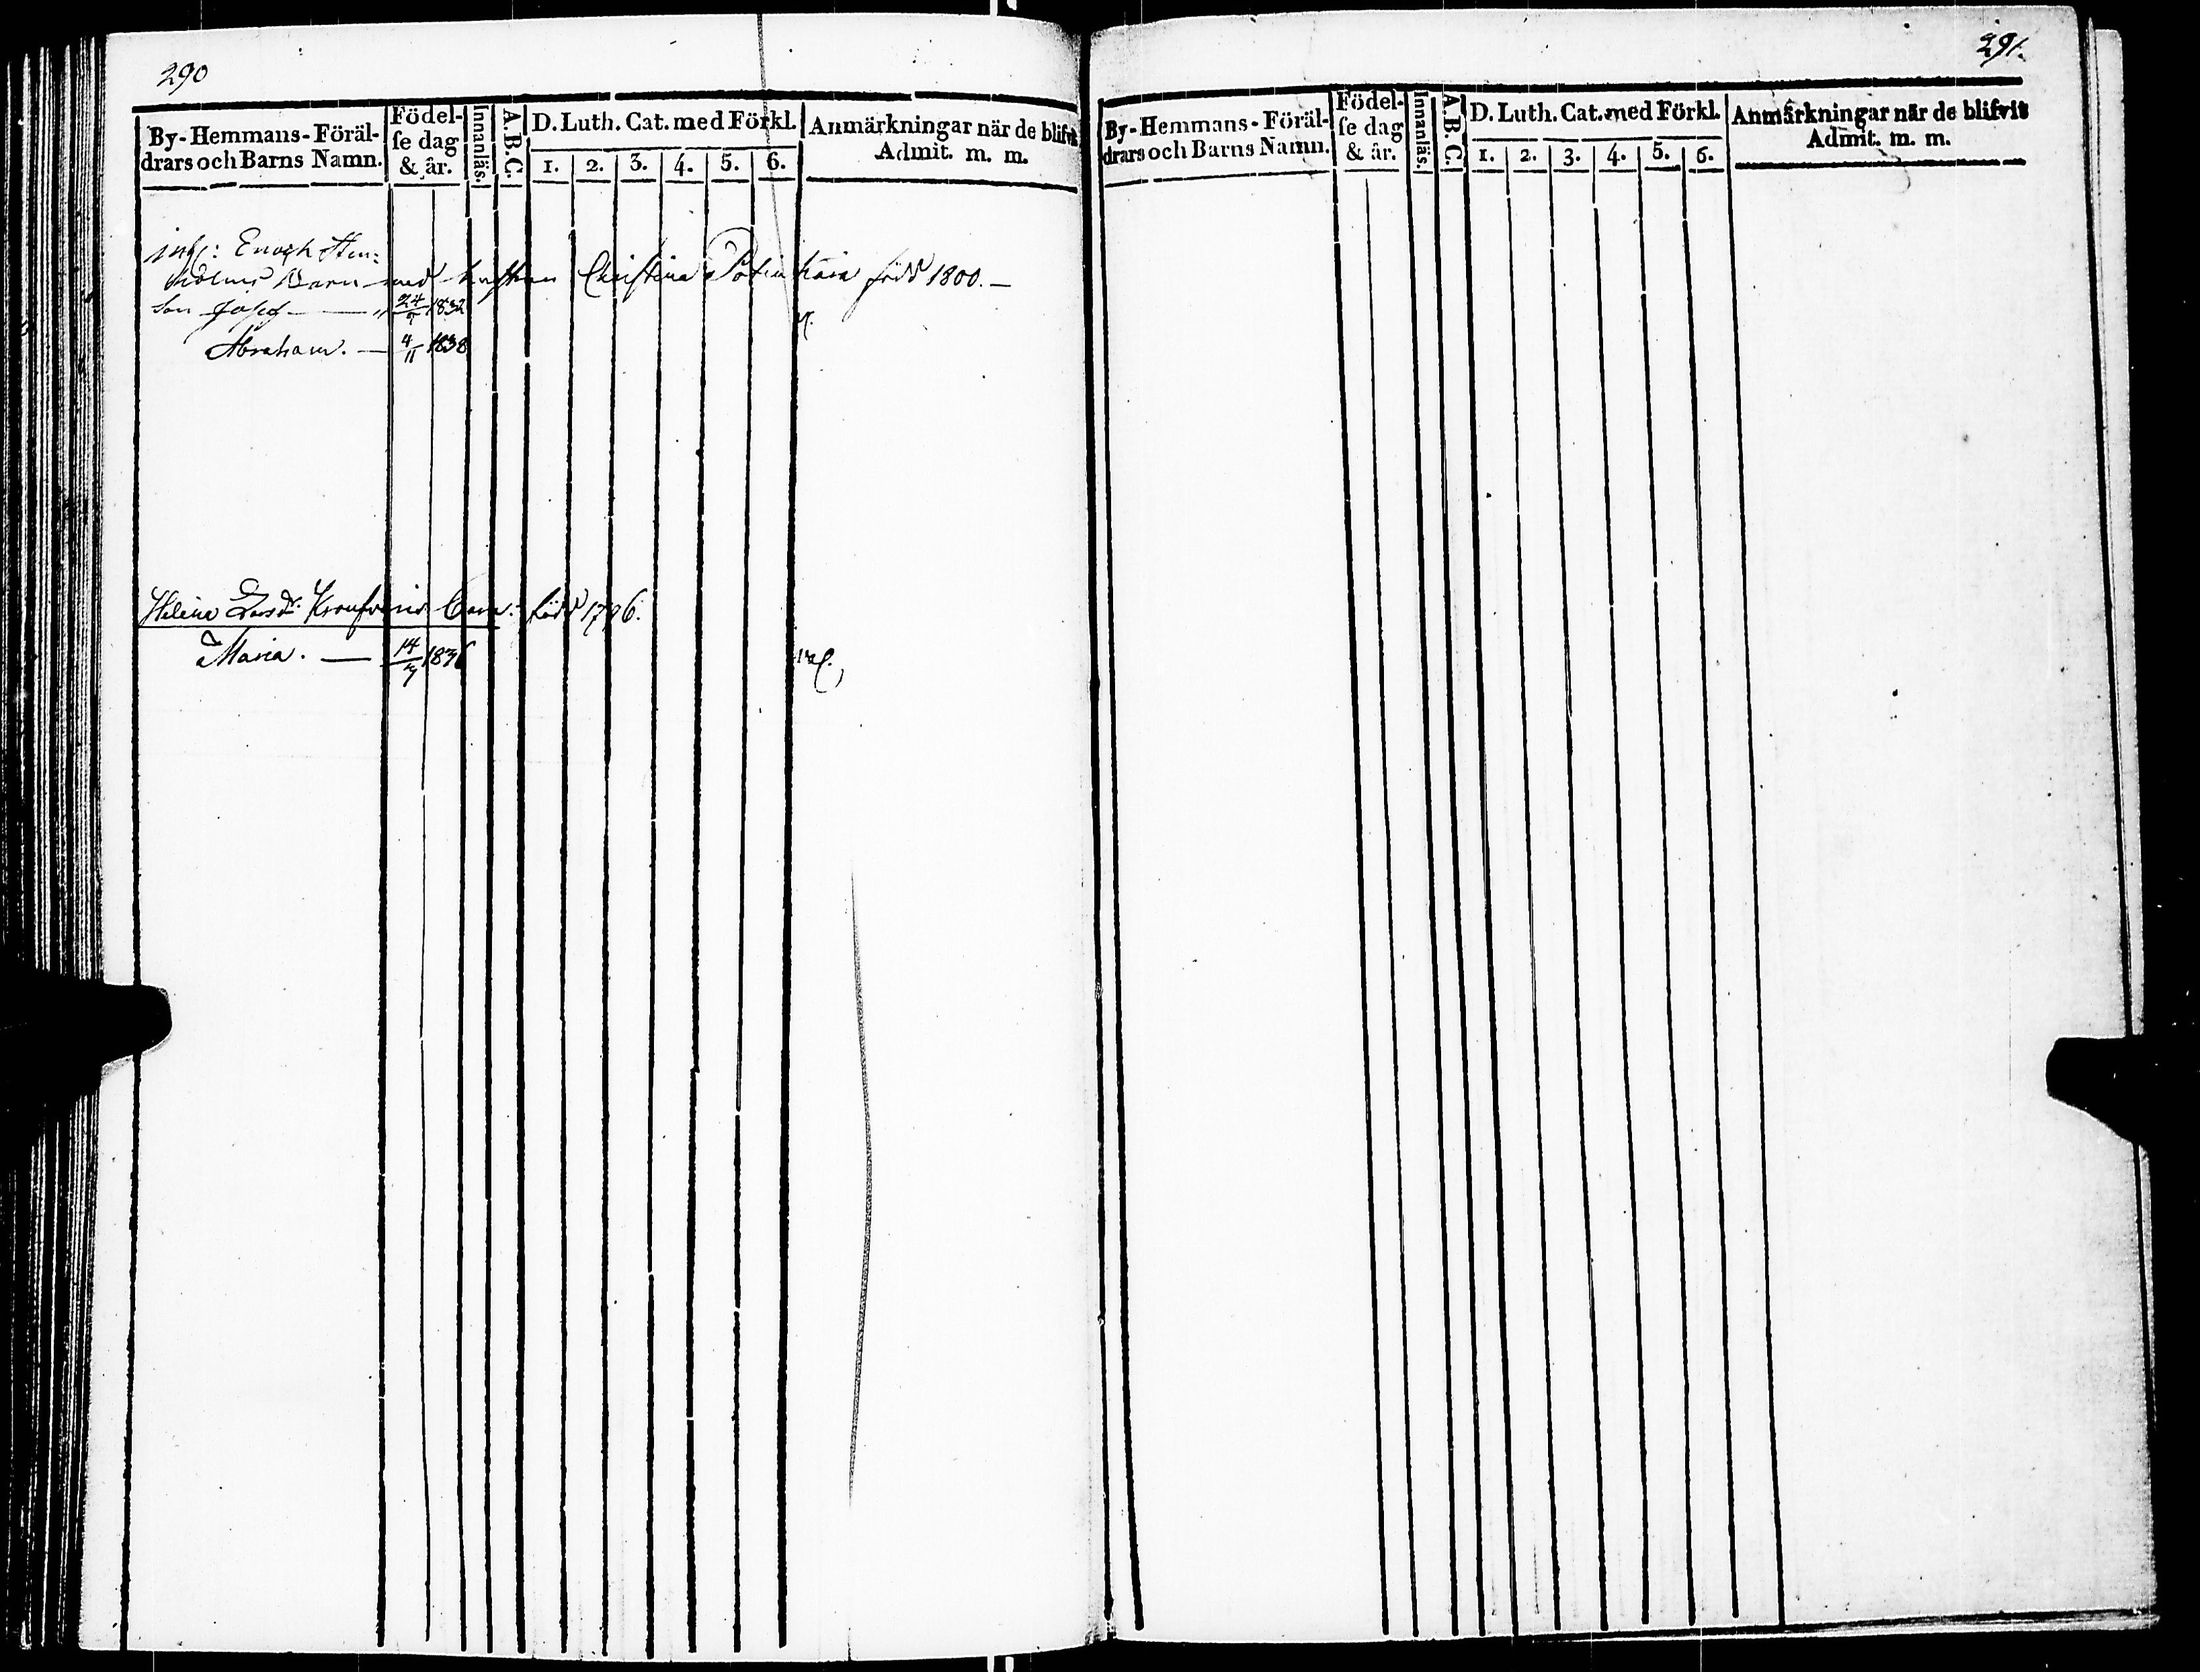 290
By-Hemmans-Föräl-
drars och Barns Namn.
Födel-
se dag
& år.
Innanläs.
A.B.C.
D. Luth. Cat. med Förkl.
1. 2. 3. 4. 5. 6.
Anmärkningar när de blifvit
Admit. m. m.
inh: Enoch Sten-
holms Barn med hustrun Christina född 1800. —
Son Josef — 1832
Abraham. — 4/11 1838
Helena född 1796.
Maria. — 14 1836
291.
By-Hemmans-Föräl-
drars och Barns Namn.
Födel-
se dag
& år.
Innanläs.
A.B.C.
D. Luth. Cat. med Förkl.
1. 2. 3. 4. 5. 6.
Anmärkningar när de blifvit
Admit. m. m.